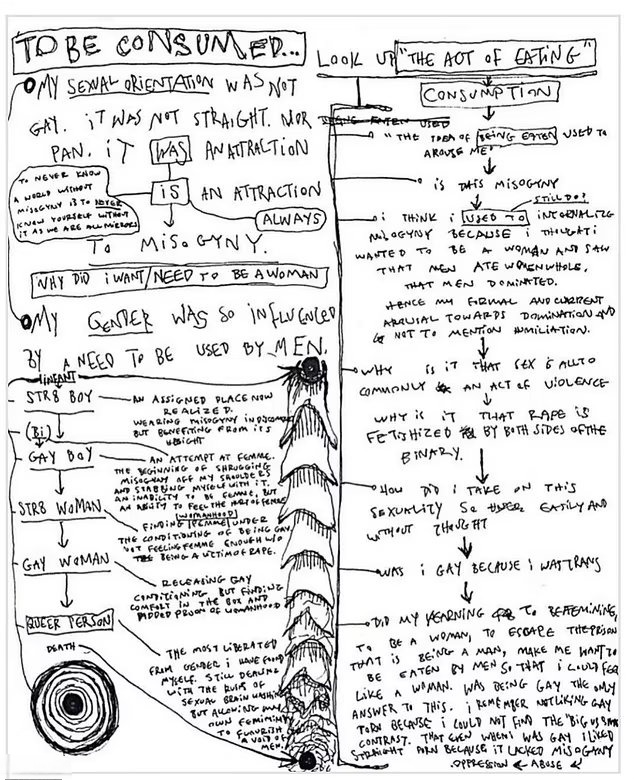 TO BE CONSUMED...
MY SEXUAL ORIENTATION WAS NOT
GAY. iT WAS NOT STRAIGHT. NOR
PAN. iT WAS AN ATTRACTION
iS AN ATTRACTION
ALWAYS
TO MiSOGYNY.
TO NEVER KNOW
A WORLD WITHOUT
MISOGYNY IS TO NEVER
KNOW YOURSELF WITHOUT
IT AS WE ARE ALL MIRRORS
WHY DID i WANT/NEED TO BE A WOMAN
MY GENDER WAS SO iNFLUENCED
BY A NEED TO BE USED BY MEN.
INFANT
STR8 BOY
(Bi)
GAY BOY
STR8 WOMAN
GAY WOMAN
QUEER PERSON
DEATH
AN ASSIGNED PLACE NOW
REALIZED.
WEARING MISOGYNY IN
BUT BENEFITING FROM ITS
AN ATTEMPT AT FEMME.
THE BEGINNING OF SHRUGGING
MISOGYNY OFF MY SHOULDERS
AND STABBING MYSELF WITH IT.
AN INABILITY TO BE FEMME, BUT
AN ABILITY TO FEEL THE ART OF FEMME
[WOMANHOOD]
FINDING [FEMME] UNDER
THE CONDITIONING OF BEING GAY
NOT FEELING FEMME ENOUGH W/O
BEING A VICTIM OF RAPE.
RELEASING GAY
CONDITIONING BUT FINDING
COMFORT IN THE BOX AND
PADDED PRISON OF WOMANHOOD
THE MOST LIBERATED
FROM GENDER i HAVE FOUND
MYSELF. STILL DEALING
WITH THE RUINS OF
SEXUAL BRAIN WASHING
BUT ALLOWING MY
OWN FEMININITY
TO FLOURISH
A VOID OF
MEN.
LOOK UP "THE ACT OF EATING"
CONSUMPTION
"THE IDEA OF BEING EATEN USED TO
AROUSE ME"
iS THIS MISOGYNY
STILL DO?
i THINK i USED TO INTERNALIZE
MISOGYNY BECAUSE i THOUGHT i
WANTED TO BE A WOMAN AND SAW
THAT MEN ATE WOMEN WHOLE.
THAT MEN DOMINATED.
HENCE MY FORMAL AND CURRENT
AROUSAL TOWARDS DOMINATION AND
NOT TO MENTION HUMILIATION.
WHY IS IT THAT SEX IS ALL TO
COMMONLY AN ACT OF VIOLENCE
WHY IS IT THAT RAPE IS
FETISHIZED BY BOTH SIDES OF THE
BINARY.
HOW DID i TAKE ON THIS
SEXUALITY SO EATILY AND
WITHOUT THOUGHT
WAS i GAY BECAUSE i WAT TRANS
DID MY YEARNING TO BE FEMININE,
TO BE A WOMAN, TO ESCAPE THE PRISON
THAT IS BEING A MAN, MAKE ME WANT TO
BE EATEN BY MEN SO THAT i COULD FEEL
LIKE A WOMAN. WAS BEING GAY THE ONLY
ANSWER TO THIS. i REMEMBER NOT LIKING GAY
PORN BECAUSE i COULD NOT FIND THE "BIG VS SMALL"
CONTRAST. THAT EVEN WHEN i WAS GAY i LIKED
STRAIGHT PORN BECAUSE IT LACKED MISOGYNY
OPPRESSION ← ABUSE